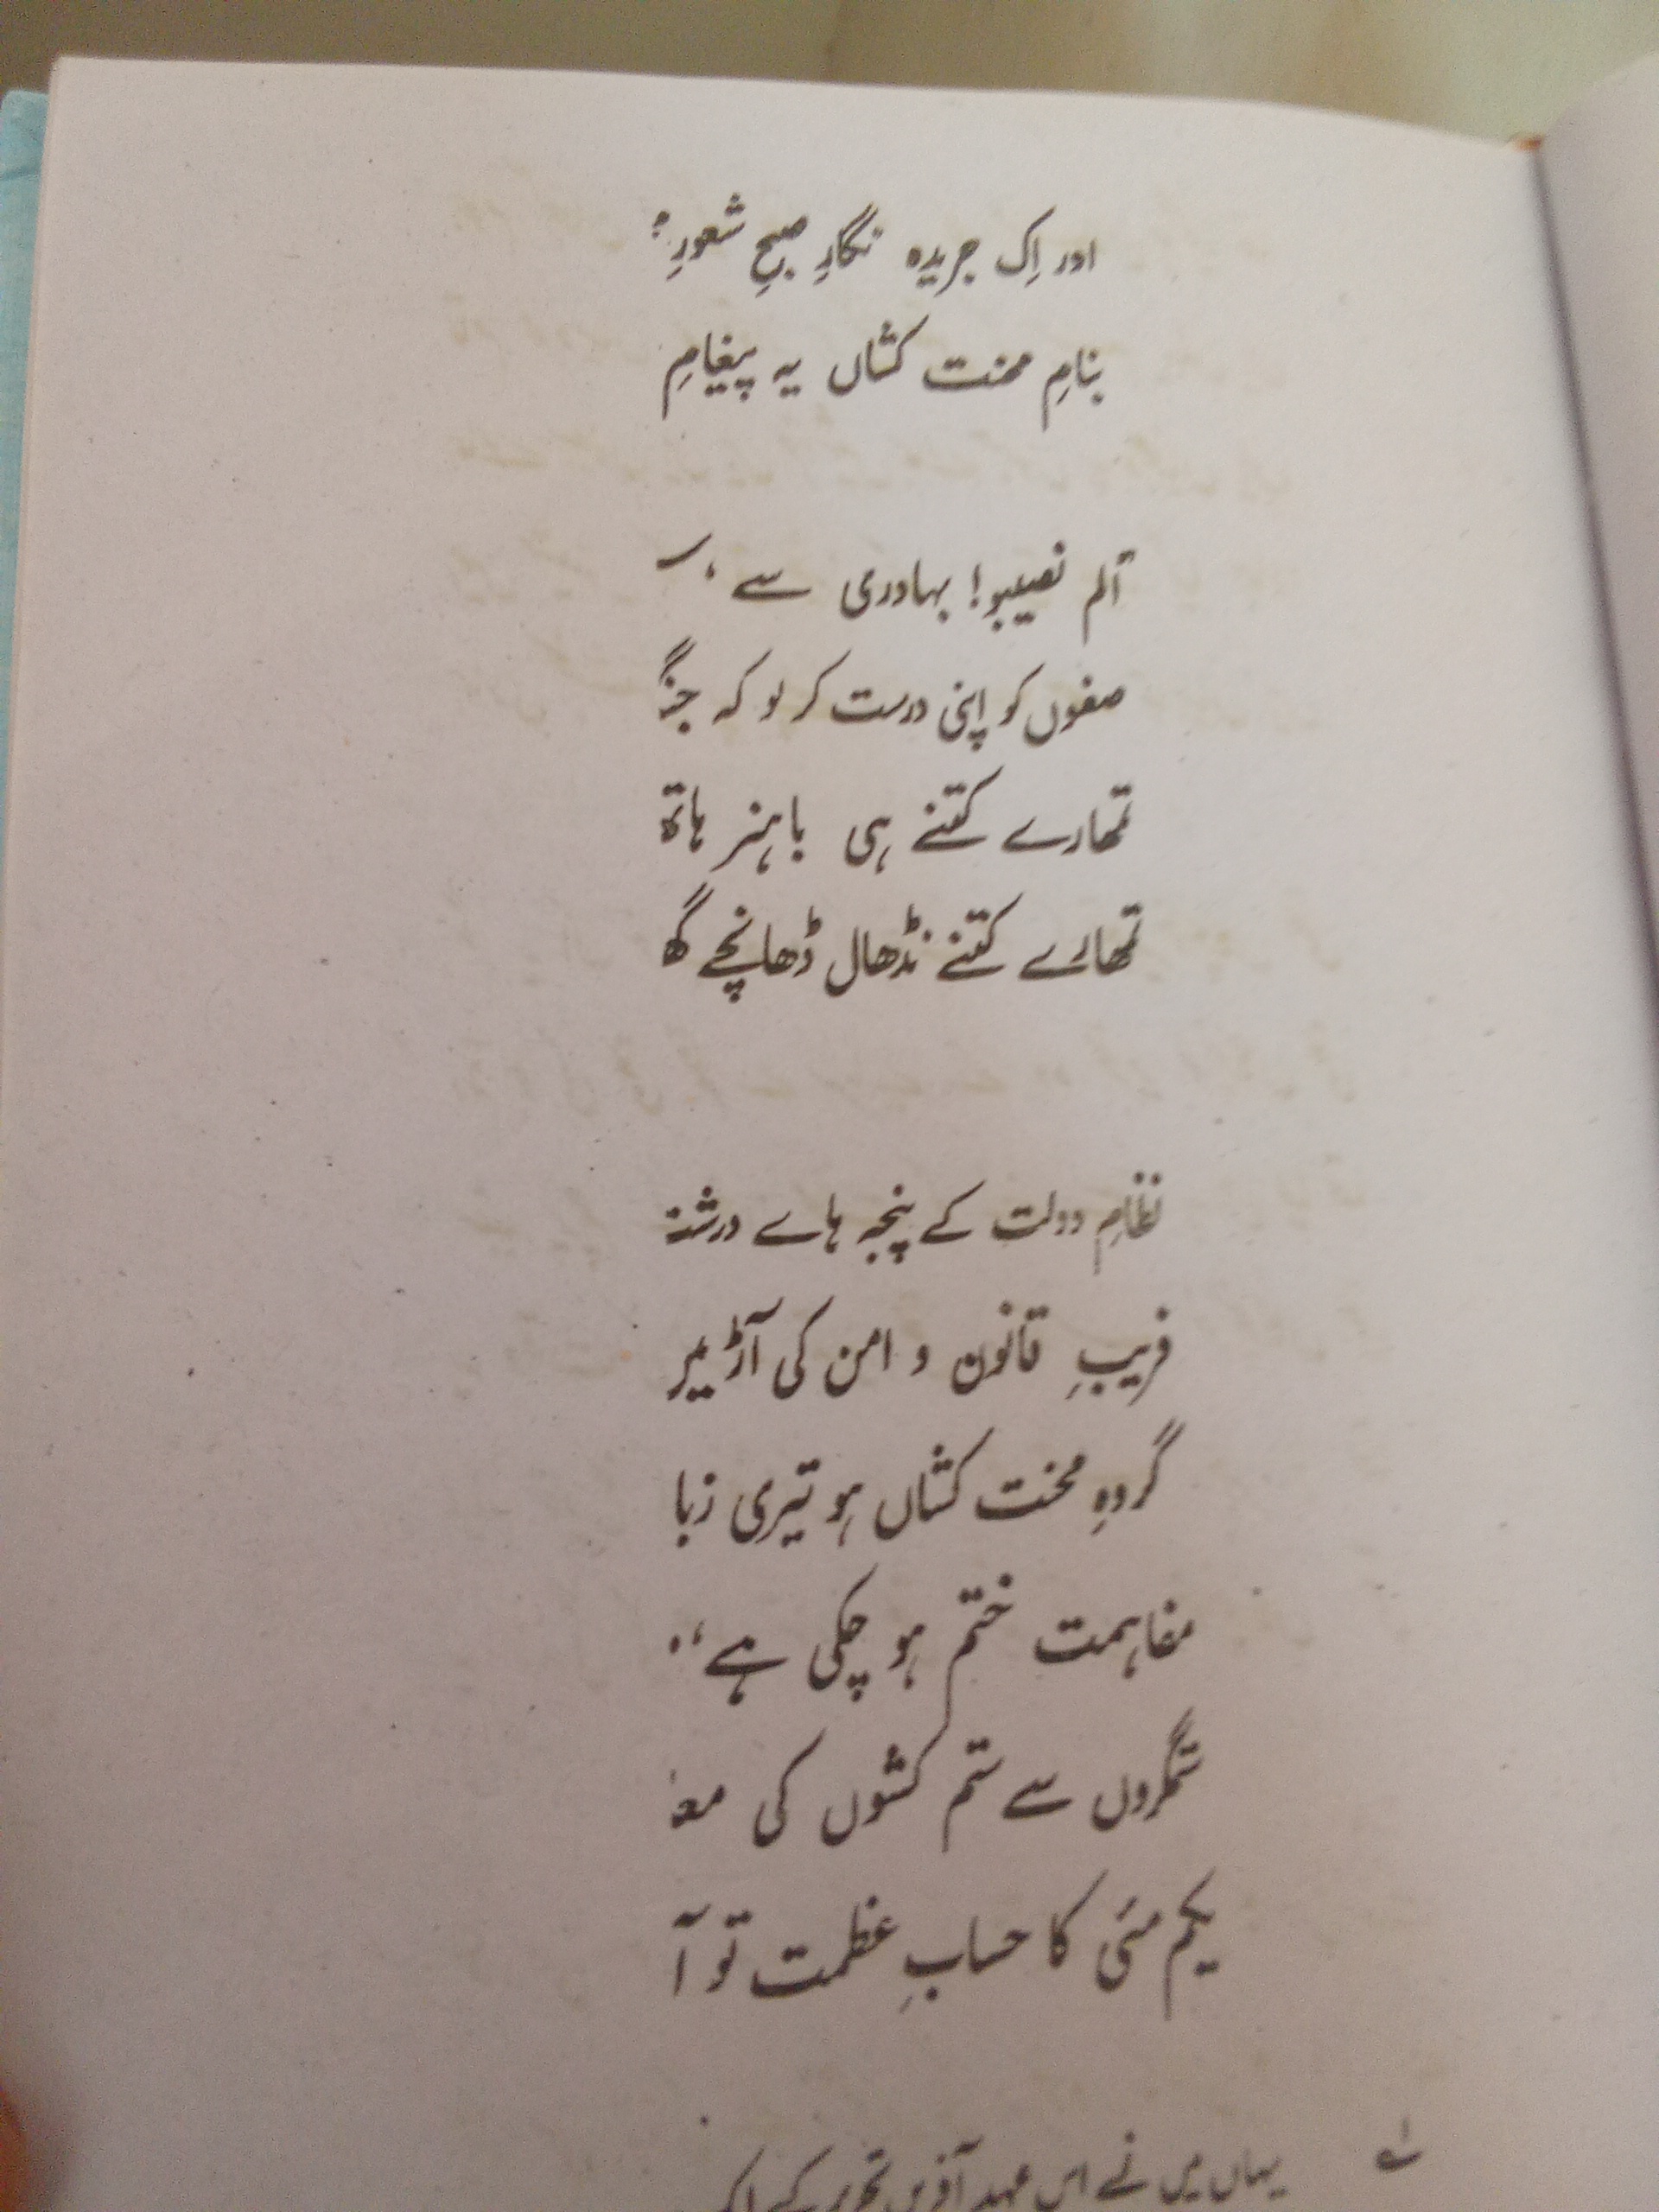 اور اِک جریدہ نگارِ صبحِ شعورِ
بنامِ محنت کشاں یہ پیغامِ
الم نصیبو! بہادری سے
صفوں کو اپنی درست کر لو کہ جنگ
تمھارے کتنے ہی باہنر ہاتھ
تمھارے کتنے نڈھال ڈھانچے گھ
نظامِ دولت کے پنجہ ہاے درشت
فریبِ قانون و امن کی آڑ میں
گروہِ محنت کشاں ہو تیری زبا
مفاہمت ختم ہو چکی ہے
ستمگروں سے ستم کشوں کی مف
یکم مئی کا حسابِ عظمت تو آ
یہاں میں نے اس عہد آفریں تحریر کے